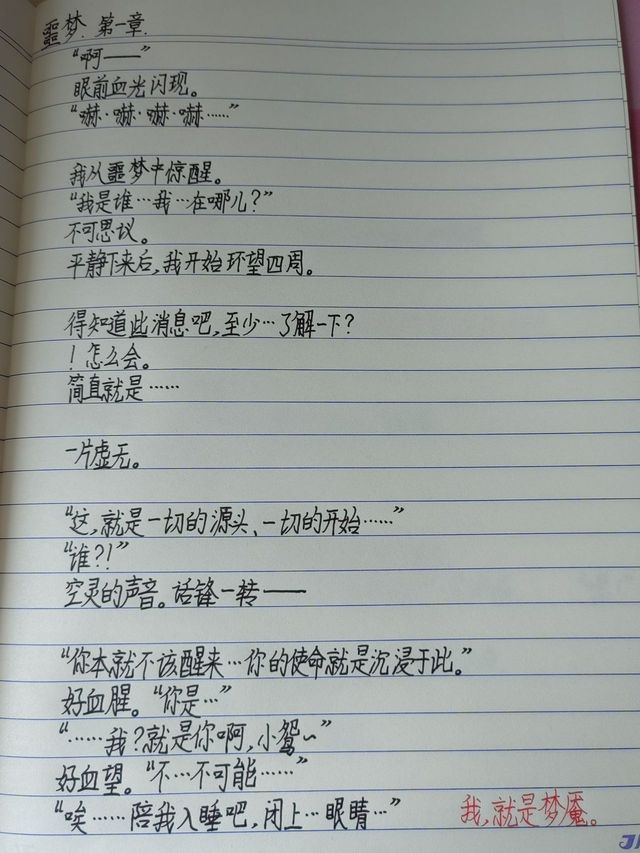 噩梦. 第一章.
“啊——”
眼前血光闪现。
“嚇·嚇·嚇·嚇……”
我从噩梦中惊醒。
“我是谁…我…在哪儿?”
不可思议。
平静下来后,我开始环望四周。
得知道此消息吧,至少…了解一下?
！怎么会。
简直就是……
一片虚无。
“这,就是一切的源头、一切的开始……”
“谁?!”
空灵的声音。话锋一转——
“你本就不该醒来…你的使命就是沉浸于此。”
好血腥。“你是…”
“……我?就是你啊,小鸳~”
好血望。“不…不可能……”
“唉……陪我入睡吧,闭上…眼睛…”
我,就是梦魇。